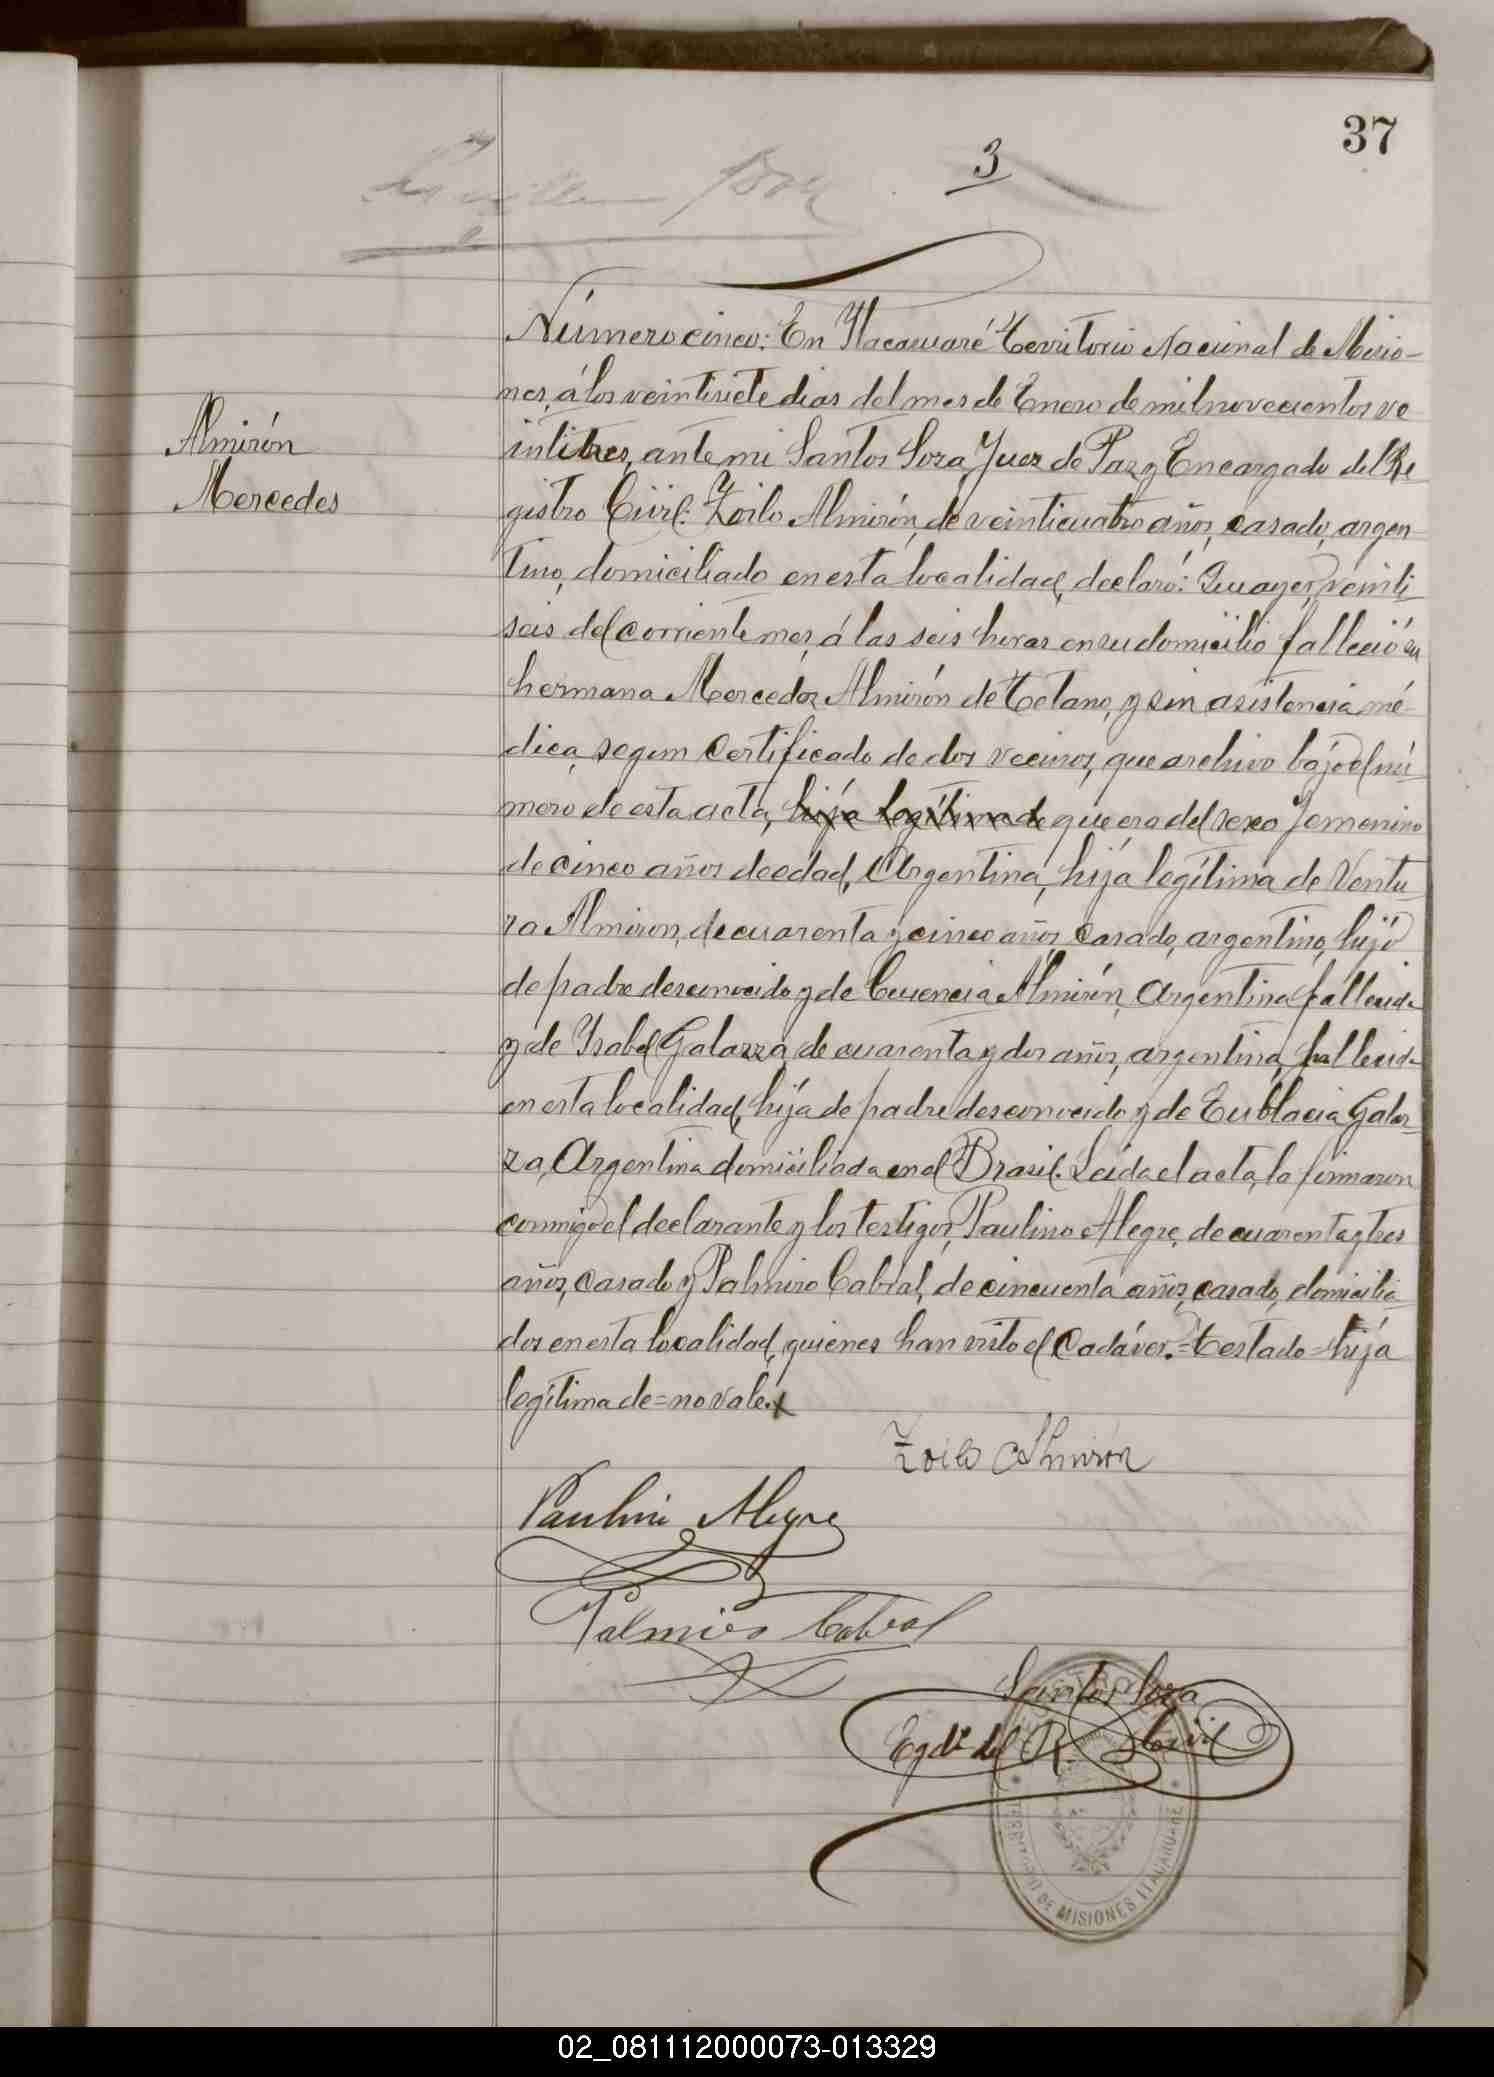 37
3
Almirón
Mercedes
Número cinco: En Itacaruaré Territorio Nacional de Misio-
nes, á los veintisiete dias del mes de Enero de mil novecientos ve
intitres, ante mi Santos Soza, Juez de Paz y Encargado del Re
gistro Civil: Zoilo Almirón, de veinticuatro años, casado, argen-
tino, domiciliado en esta localidad, declaró: Que ayer, veinti
seis del corriente mes, á las seis horas en su domicilio falleció su
hermana Mercedes Almirón de Tetano, y sin asistencia mé-
dica, segun certificado de dos vecinos, que archivo bajo el nú-
mero de esta acta, hija legítima de que era del sexo femenino
de cinco años de edad, Argentina, hija legítima de Ventu-
ra Almiron, de cuarenta y cinco años, casado, argentino, hijo
de padre desconocido y de Almirón, Argentina fallecida
y de Isabel Galarza, de cuarenta y dos años, argentina, fallecida
en esta localidad, hija de padre desconocido y de Eublacia Galar-
za, Argentina domiciliada en el Brasil. Leida el acta, la firmaron
conmigo el declarante y los testigos, Paulino Alegre, de cuarenta y tres
años, casado y Palmiro Cabral, de cincuenta años, casado, domicilia-
dos en esta localidad, quienes han visto el Cadáver.=Testado=hija
legítima de=no vale.x
Zoilo Almirón
Paulino Alegre
Palmiro Cabral
Santos Soza
Egdo. del R. Civil
TERRITORIO DE MISIONES ITACARUARÉ
02_081112000073-013329